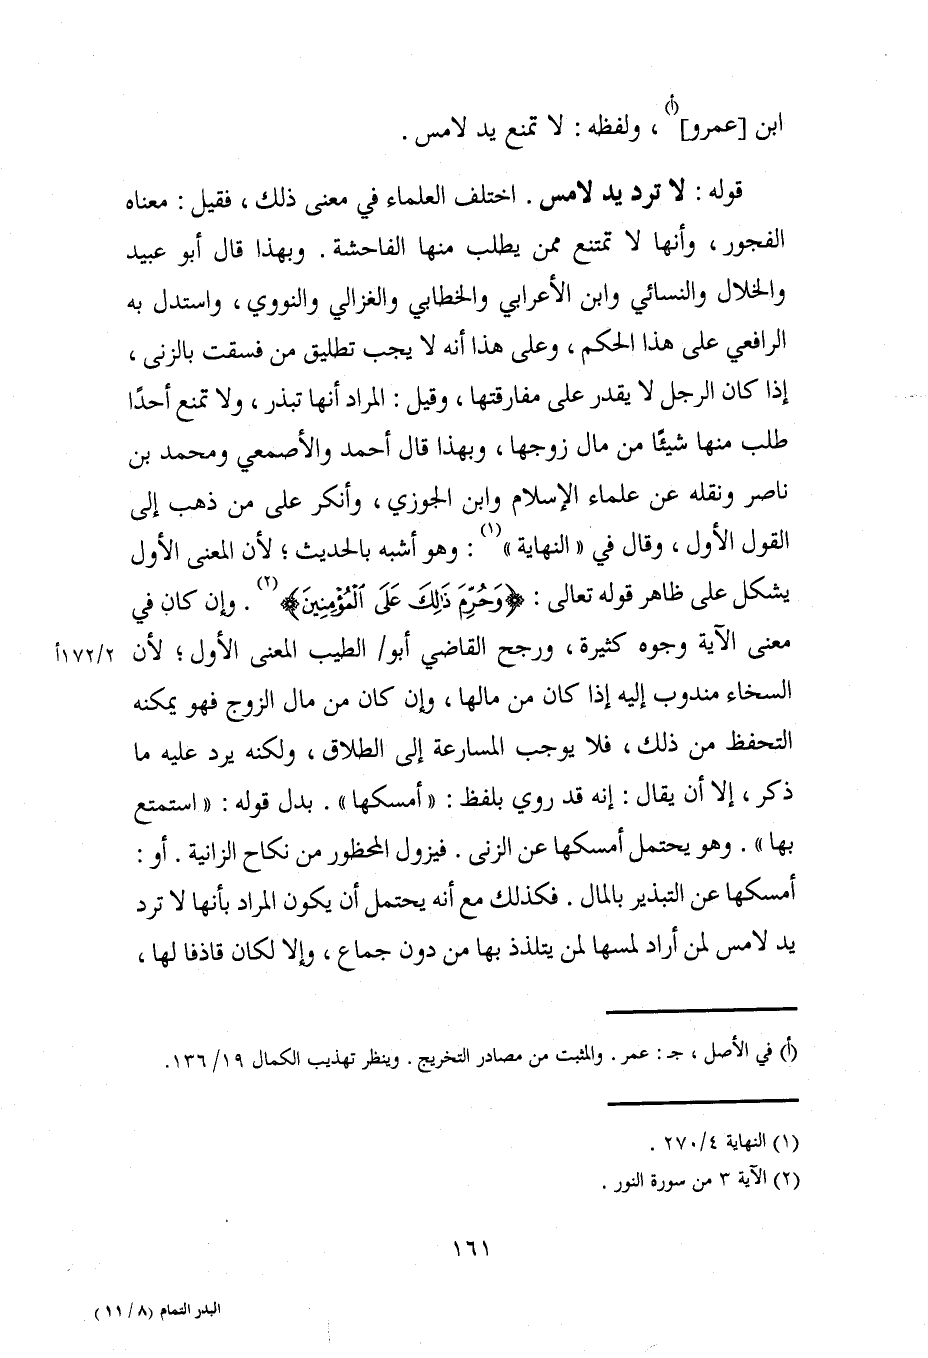 ابن [عمرو](أ) ، ولفظه : لا تمنع يد لامس .
قوله : لا ترد يد لامس . اختلف العلماء في معنى ذلك ، فقيل : معناه
الفجور ، وأنها لا تمتنع ممن يطلب منها الفاحشة . وبهذا قال أبو عبيد
والخلال والنسائي وابن الأعرابي والخطابي والغزالي والنووي ، واستدل به
الرافعي على هذا الحكم ، وعلى هذا أنه لا يجب تطليق من فسقت بالزنى ،
إذا كان الرجل لا يقدر على مفارقتها ، وقيل : المراد أنها تبذر ، ولا تمنع أحدًا
طلب منها شيئًا من مال زوجها ، وبهذا قال أحمد والأصمعي ومحمد بن
ناصر ونقله عن علماء الإسلام وابن الجوزي ، وأنكر على من ذهب إلى
القول الأول ، وقال في « النهاية »(١) : وهو أشبه بالحديث ؛ لأن المعنى الأول
يشكل على ظاهر قوله تعالى : ﴿وَحُرِّمَ ذَٰلِكَ عَلَى ٱلْمُؤْمِنِينَ﴾(٢) . وإن كان في
معنى الآية وجوه كثيرة ، ورجح القاضي أبو/ الطيب المعنى الأول ؛ لأن ١٧٢/٢أ
السخاء مندوب إليه إذا كان من مالها ، وإن كان من مال الزوج فهو يمكنه
التحفظ من ذلك ، فلا يوجب المسارعة إلى الطلاق ، ولكنه يرد عليه ما
ذكر ، إلا أن يقال : إنه قد روي بلفظ : « أمسكها» . بدل قوله : « استمتع
بها» . وهو يحتمل أمسكها عن الزنى . فيزول المحظور من نكاح الزانية . أو :
أمسكها عن التبذير بالمال . فكذلك مع أنه يحتمل أن يكون المراد بأنها لا ترد
يد لامس لمن أراد لمسها لمن يتلذذ بها من دون جماع ، وإلا لكان قاذفا لها ،
(أ) في الأصل ، جـ : عمر . والمثبت من مصادر التخريج . وينظر تهذيب الكمال ١٩/ ١٣٦.
(١) النهاية ٤/ ٢٧٠ .
(٢) الآية ٣ من سورة النور .
١٦١
البدر التمام (٨/ ١١)